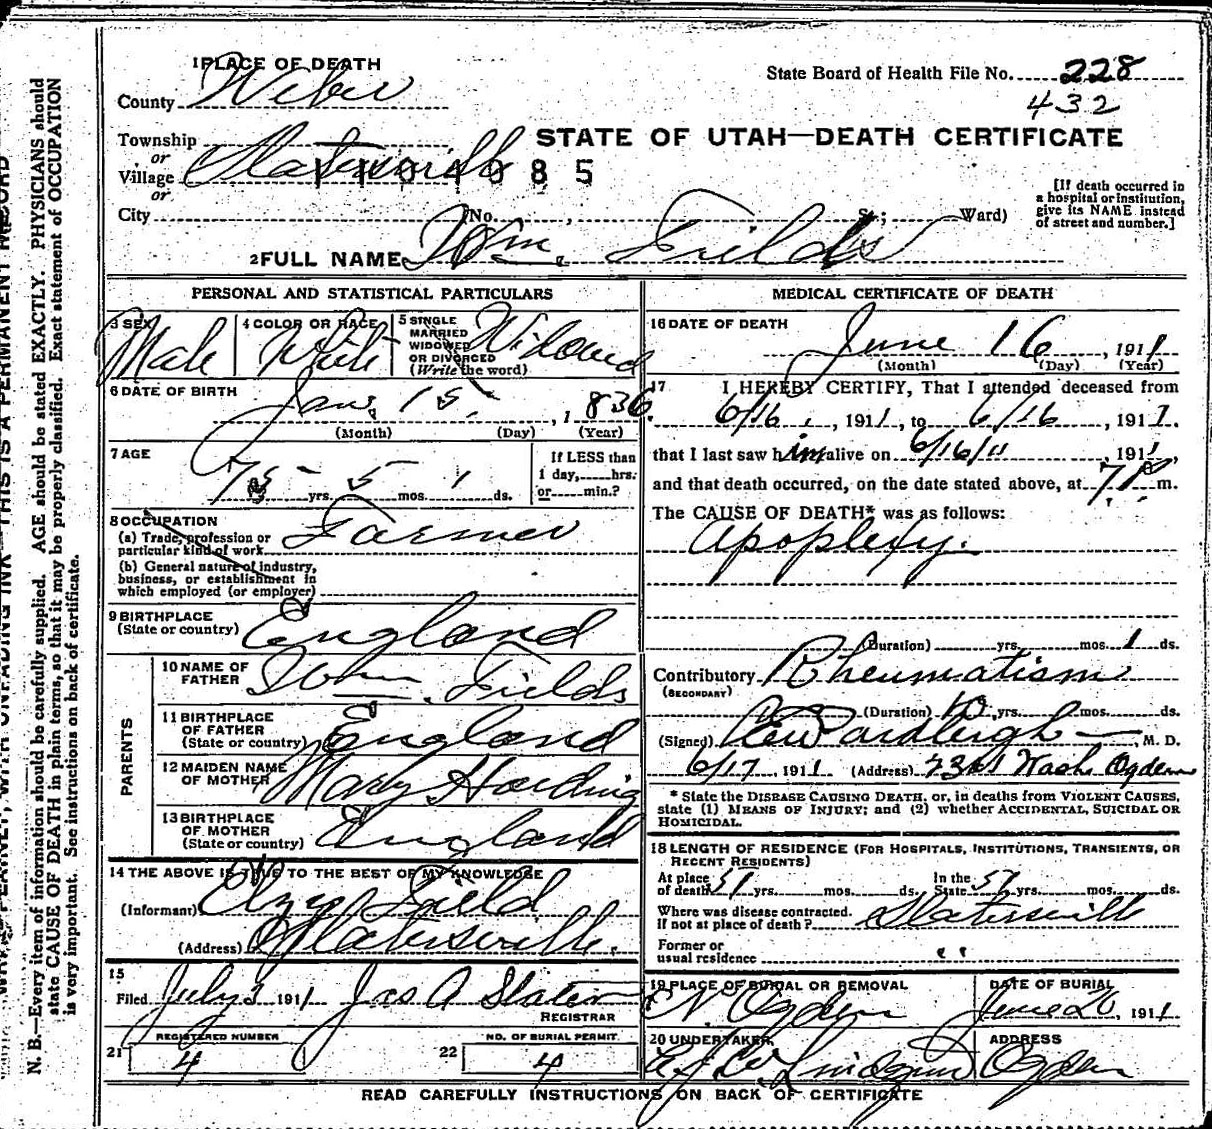 1 PLACE OF DEATH
County Weber
State Board of Health File No. 228
432
Township
or
Village Slatersville
or
STATE OF UTAH—DEATH CERTIFICATE
85
City (No. , St.; Ward)
[If death occurred in
a hospital or institution,
give its NAME instead
of street and number.]
2 FULL NAME Wm. Feilds
PERSONAL AND STATISTICAL PARTICULARS
3 SEX Male
4 COLOR OR RACE White
5 SINGLE
MARRIED
WIDOWED
OR DIVORCED
(Write the word) Widowed
6 DATE OF BIRTH
Jan. 15, 1836
(Month) (Day) (Year)
7 AGE
75 yrs. 5 mos. 1 ds.
If LESS than
1 day, hrs.
or min.?
8 OCCUPATION
(a) Trade, profession or
particular kind of work Farmer
(b) General nature of industry,
business, or establishment in
which employed (or employer)
9 BIRTHPLACE
(State or country) England
PARENTS
10 NAME OF
FATHER John Fields
11 BIRTHPLACE
OF FATHER
(State or country) England
12 MAIDEN NAME
OF MOTHER Mary Harding
13 BIRTHPLACE
OF MOTHER
(State or country) England
14 THE ABOVE IS TRUE TO THE BEST OF MY KNOWLEDGE
(Informant) Field
(Address) Slatersville.
15
Filed July 3 1911 Jas A Slater
REGISTRAR
REGISTERED NUMBER
21 4
NO. OF BURIAL PERMIT
22 4
MEDICAL CERTIFICATE OF DEATH
16 DATE OF DEATH
June 16, 1911
(Month) (Day) (Year)
17 I HEREBY CERTIFY, That I attended deceased from
6/16, 1911, to 6/16, 1911.
that I last saw him alive on 6/16/11, 1911,
and that death occurred, on the date stated above, at 7 P m.
The CAUSE OF DEATH* was as follows:
Apoplexy.
(Duration) yrs. mos. 1 ds.
Contributory Rheumatism
(SECONDARY)
(Duration) 10 yrs. mos. ds.
(Signed) Ardleigh M. D.
6/17, 1911 (Address) 2361 Wash. Ogden
* State the DISEASE CAUSING DEATH, or, in deaths from VIOLENT CAUSES,
state (1) MEANS OF INJURY; and (2) whether ACCIDENTAL, SUICIDAL OR
HOMICIDAL.
18 LENGTH OF RESIDENCE (FOR HOSPITALS, INSTITUTIONS, TRANSIENTS, OR
RECENT RESIDENTS)
At place In the
of death 51 yrs. mos. ds. State 51 yrs. mos. ds.
Where was disease contracted.
If not at place of death? Slatersville
Former or
usual residence " "
19 PLACE OF BURIAL OR REMOVAL
N. Ogden
DATE OF BURIAL
June 20, 1911
20 UNDERTAKER
Lindquist
ADDRESS
Ogden
READ CAREFULLY INSTRUCTIONS ON BACK OF CERTIFICATE
N. B.—Every item of information should be carefully supplied. AGE should be stated EXACTLY. PHYSICIANS should
state CAUSE OF DEATH in plain terms, so that it may be properly classified. Exact statement of OCCUPATION
is very important. See instructions on back of certificate.
WITH UNFADING INK—THIS IS A PERMANENT RECORD